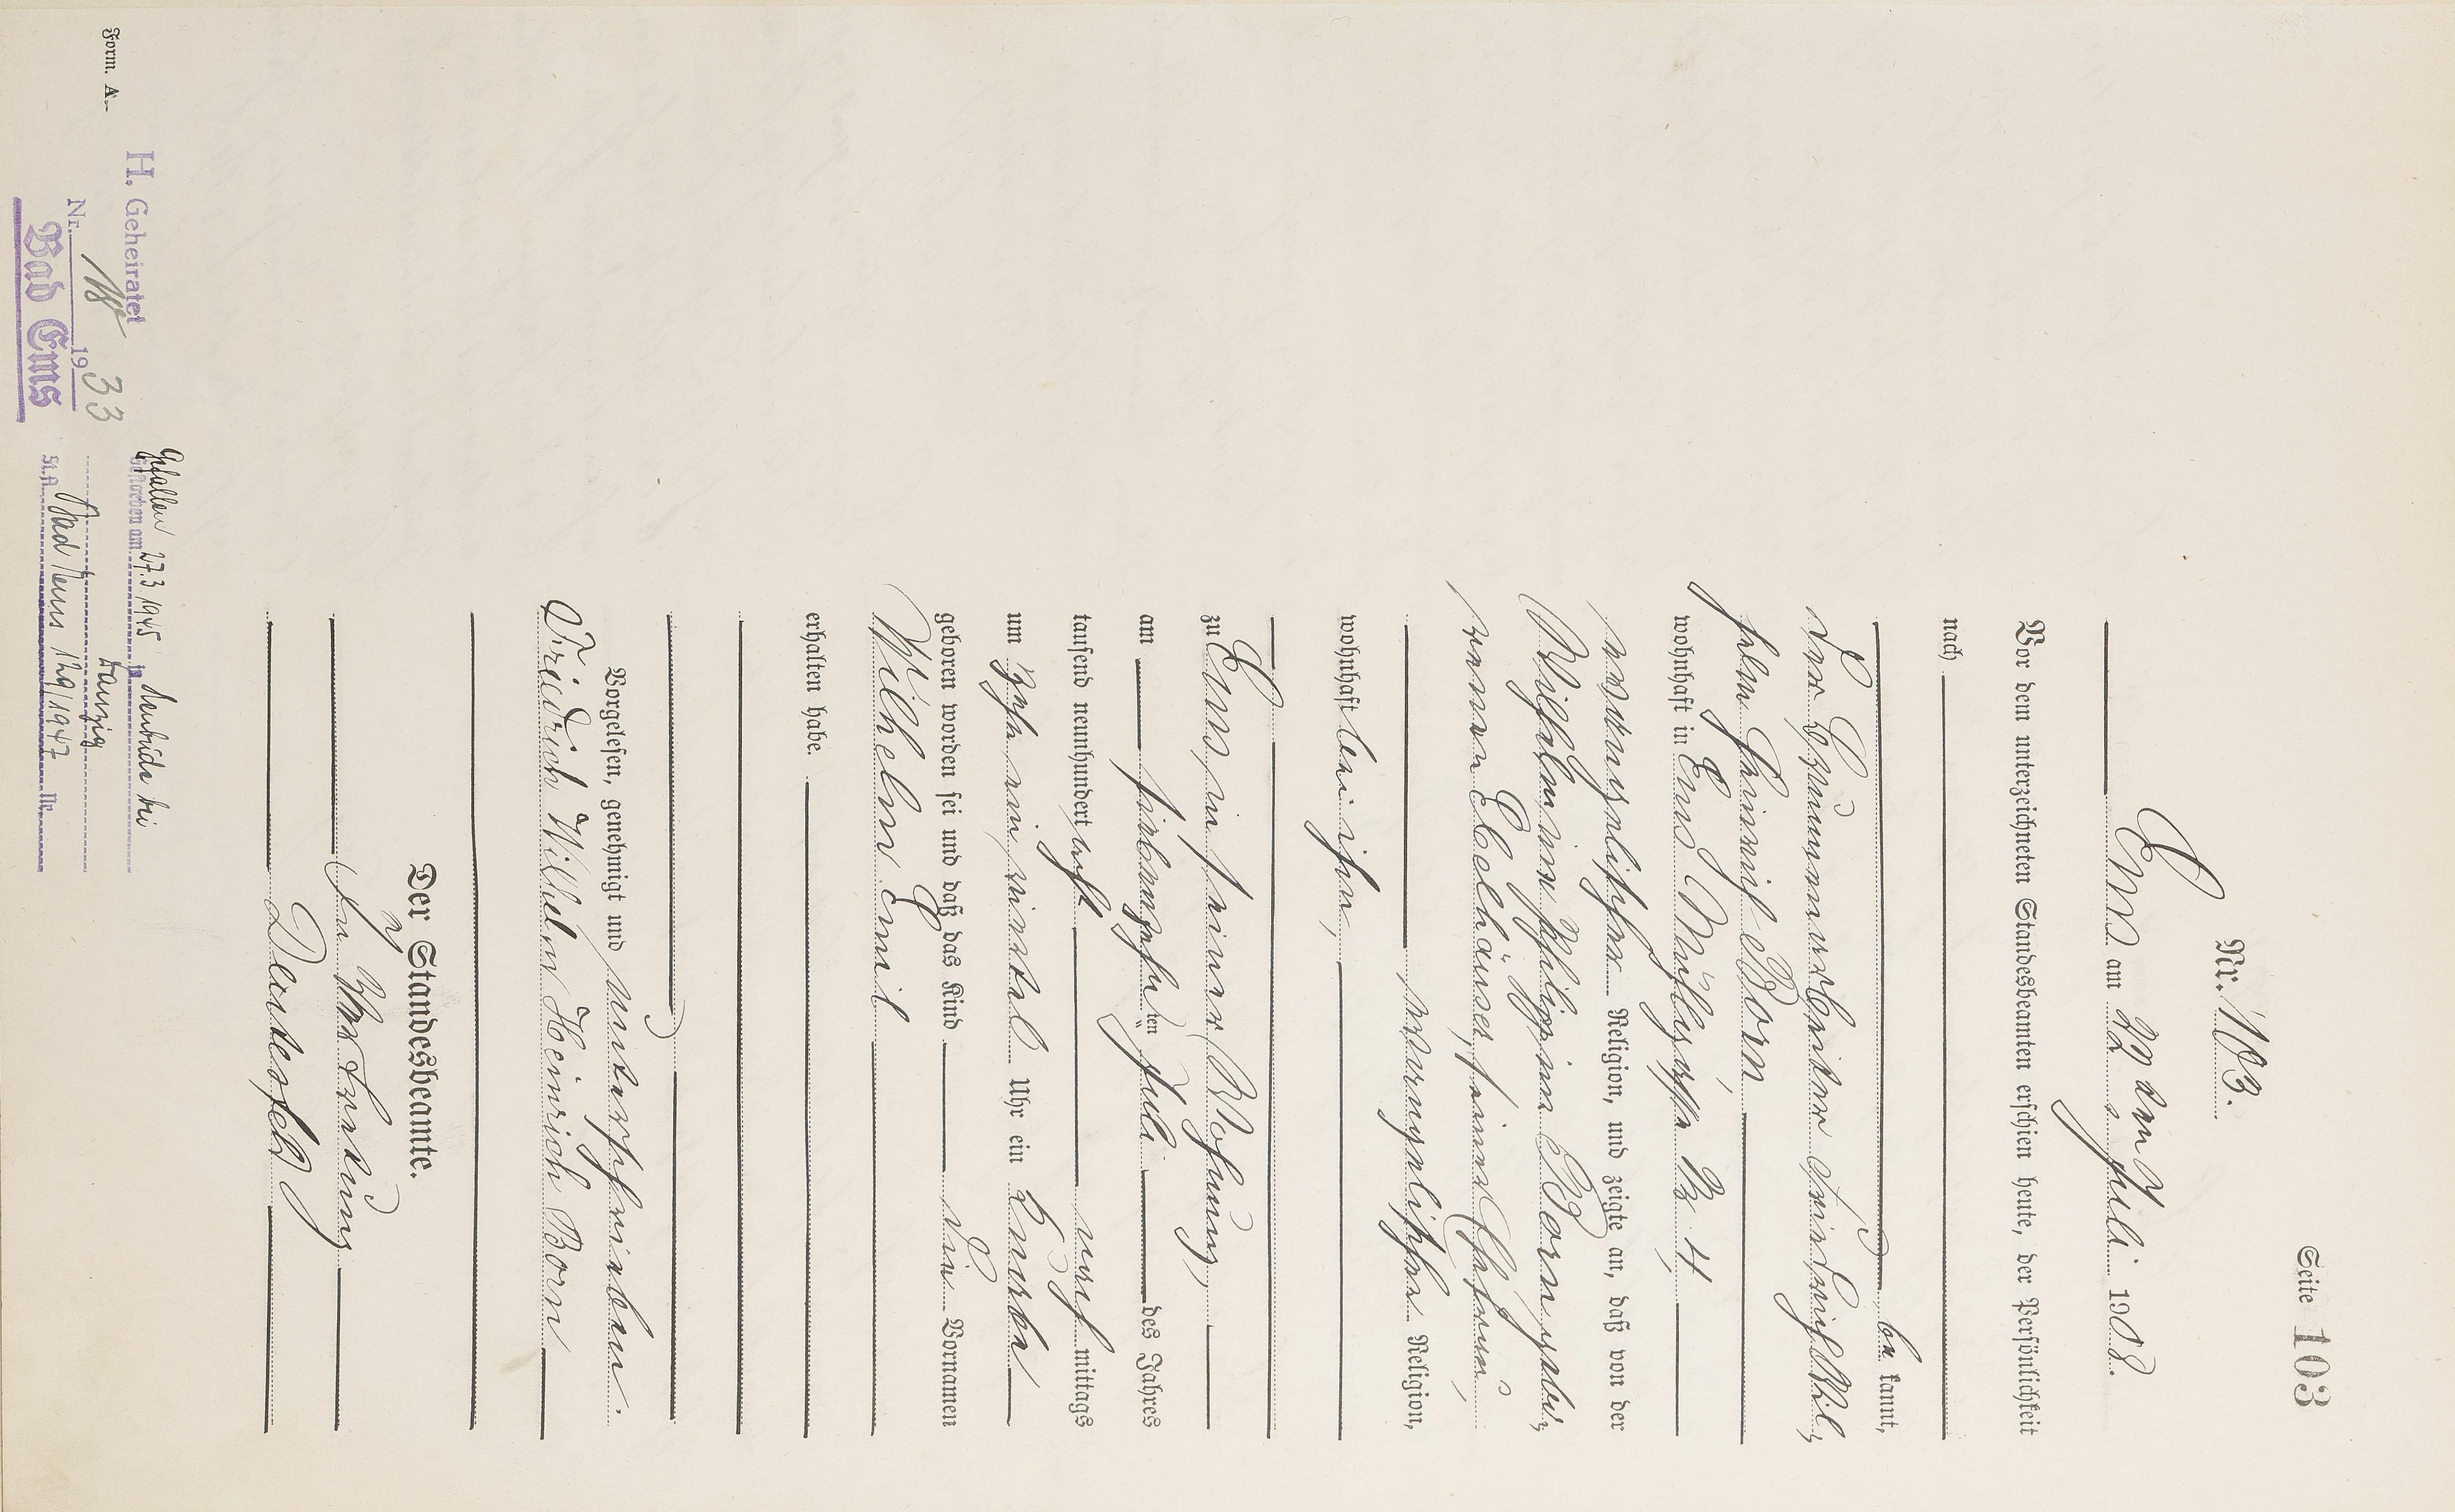 Seite 103
Nr. 103.
Ems am 22 ten Juli 1908.
Vor dem unterzeichneten Standesbeamten erschien heute, der Persönlichkeit
nach
be kannt,
der Brunnenarbeiter Friedrich Wil,
helm Heinrich Born
wohnhaft in Ems Mühlgasse No 4,
evangelischer Religion, und zeigte an, daß von der
Wilhelmine Philippine Born gebo,
renen Edelhäuser, seiner Ehefrau,
evangelischer Religion,
wohnhaft bei ihm,
zu Ems, in seiner Wohnung,
am siebenzehnten Juli des Jahres
tausend neunhundert acht nach mittags
um zehn ein viertel Uhr ein Knabe
geboren worden sei und daß das Kind die Vornamen
Wilhelm Emil
erhalten habe.
Vorgelesen, genehmigt und unterschrieben.
Friedrich Wilhelm Heinrich Born
Der Standesbeamte.
In Vertretung
Form. A.
H. Geheiratet
Nr. 1933
Bad Ems
Gefallen 27.3.1945 in Neubude bei
Gestorben am
Danzig
St.A. Bad Ems 129/1947 Nr.